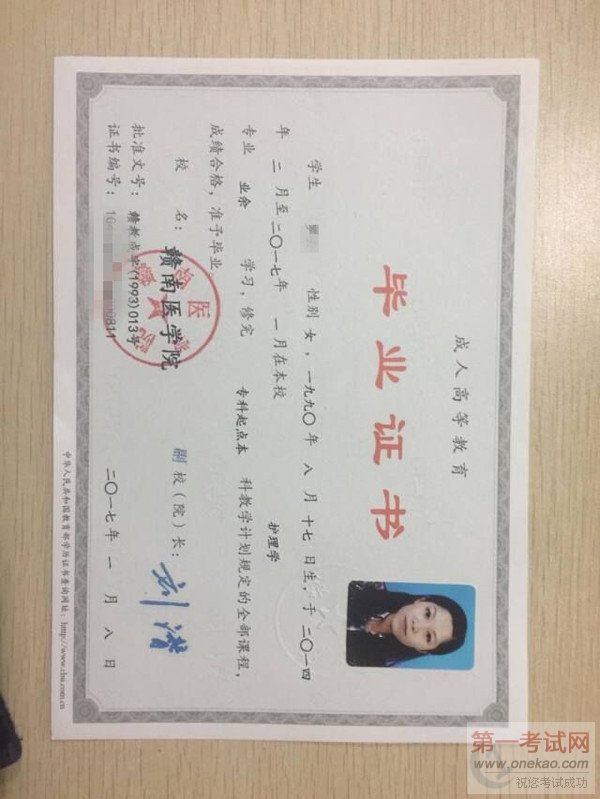 成人高等教育
毕业证书
学生 性别 女，一九九〇年 八 月 十七 日生，于 二〇一四
年 二 月至 二〇一七年 一 月在本校 护理学
专业 业余 学习，修完 专科起点本 科教学计划规定的全部课程，
成绩合格，准予毕业。
校 名：赣南医学院 副 校（院）长：
批准文号：(1993)013号
证书编号：10 00811 二〇一七年 一 月 八 日
中华人民共和国教育部学历证书查询网址：http://www.chsi.com.cn
第一考试网
www.onekao.com
祝您考试成功